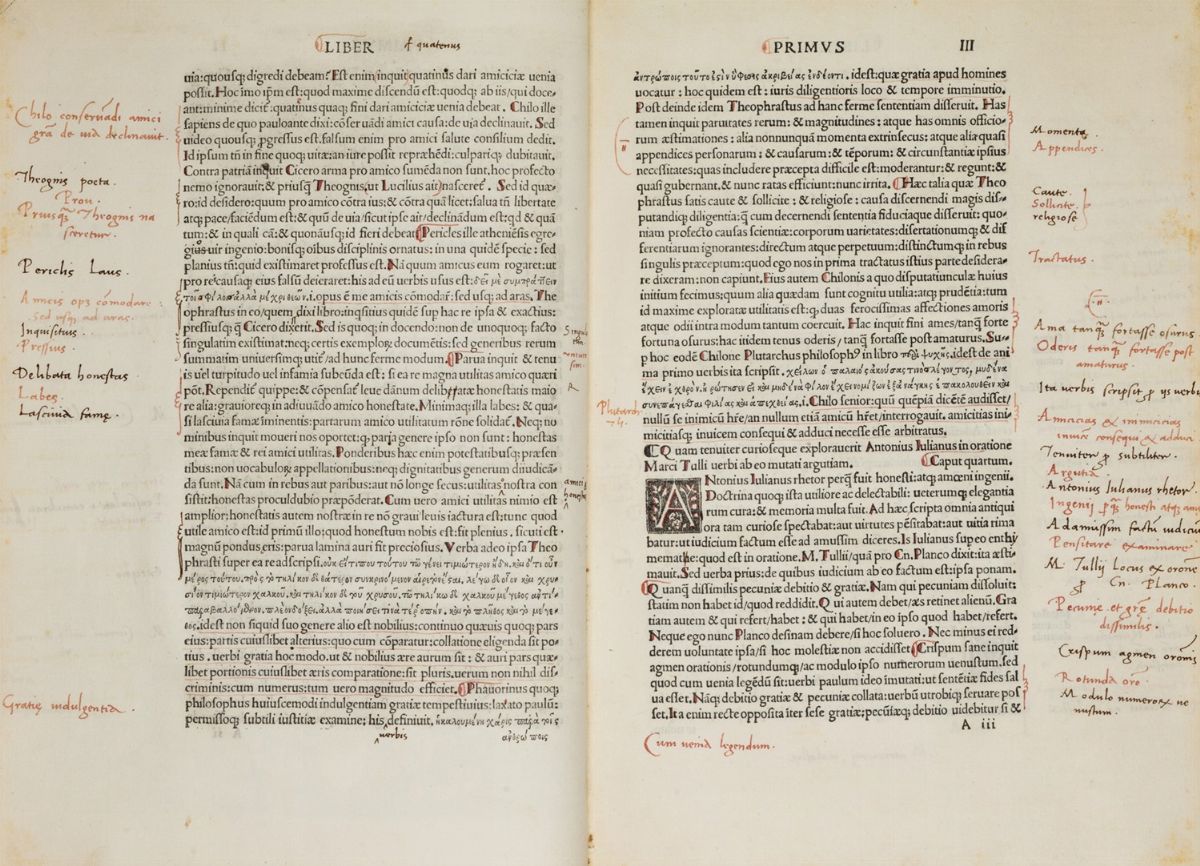 LIBER
ꝗ quatenus
uia: quousq; digredi debeam? Est enim inquit quatinus dari amiciciæ uenia
possit. Hoc imo ipm est: quod maxime discendū est: quodq; ab iis/qui doce-
ant: minime dicit̃. quatinus quaq; fini dari amiciciæ uenia debeat. Chilo ille
sapiens de quo pauloante dixi: cōser uādi amici causa: de uia declinauit. Sed
uideo quousq; ꝓgressus est. falsum enim pro amici salute consilium dedit.
Id ipsum tñ in fine quoq; uitæ: an iure possit repræhēdi: culpariq; dubitauit.
Contra patriā inquit Cicero arma pro amico sumēda non sunt. hoc profecto
nemo ignorauit: & priusq̃ Theognis, ut Lucilius ait) nasceret̃. Sed id quæ-
ro: id desidero: quum pro amico cōtra ius: & cōtra quā licet: salua tñ libertate
atq; pace/faciēdum est: & quū de uia/sicut ipse ait/declinādum est: qd & quā
tum: & in quali cā: & quonāusq; id fieri debeat. Pericles ille atheniēsis egre-
gius uir ingenio: bonisq; oībus disciplinis ornatus: in una quidē specie: sed
planius tñ: quid existimaret professus est. Nā quum amicus eum rogaret: ut
pro re/causaq; eius falsū deieraret: his ad eū uerbis usus est:
i. opus ē me amicis cōmodaf: sed usq; ad aras. The
ophrastus in eo/quem dixi libro: inqsitius quidē sup hac re ipsa & exactius:
pressiusq; q̃ Cicero dixerit. Sed is quoq; in docendo: non de unoquoq; facto
singulatim existimat: neq; certis exemplor documētis: sed generibus rerum
summatim uniuersimq; utit̃/ad hunc ferme modum. Parua inquit & tenu
is uel turpitudo uel infamia subeūda est: si ea re magna utilitas amico quæri
pōt. Rependit̃ quippe: & cōpensat̃ leue dānum delibatæ honestatis maio
re alia: grauioreq; in adiuuādo amico honestate. Minimaq; illa labes: & qua-
si lasciuia famæ iminentis: partarum amico utilitatum rōne solidat̃. Neq; no
minibus inquit moueri nos oportet: q; paria genere ipso non sunt: honestas
meæ famæ & rei amici utilitas. Ponderibus hæc enim potestatibusq; præsen
tibus: non uocabulor appellationibus: neq; dignitatibus generum diiudicā-
da sunt. Nā cum in rebus aut paribus: aut nō longe secus: utilitas nostra con
sistit: honestas proculdubio præpōderat. Cum uero amici utilitas nimio est
amplior: honestatis autem nostræ in re nō graui leuis iactura est: tunc quod
utile amico est: id primū illo: quod honestum nobis est: fit plenius. sicut est
magnū pondus æris: parua lamina auri fit preciosius. Verba adeo ipsa Theo
phrasti super ea re adscripsi.
idest non siquid suo genere alio est nobilius: continuo quæuis quoq; pars
eius: partis cuiuslibet alterius: quo cum cōparatur: collatione eligenda sit po-
tius. uerbi gratia hoc modo. ut & nobilius ære aurum sit: & auri pars quæ-
libet portionis cuiuslibet æris comparatione: sit pluris. uerum non nihil dis-
criminis: cum numerus: tum uero magnitudo efficiet. Phauorinus quoq;
philosophus huiuscemodi indulgentiam gratiæ tempestiuius: laxato paulū:
permissoq; subtili iustitiæ examine; his definiuit,
uerbis
Chilo conseruādi amici
grā de uia declinauit.
Theognis poeta.
Prou.
Priusq̃ Theognis na
sceretur.
Periclis Laus.
Amicis opꝫ cōmodare:
sed usq; ad aras.
Inquisitius
Pressius.
Delibata honestas
Labes
Lasciuia famę.
Gratię indulgentia.
PRIMVS
III
idest: quæ gratia apud homines
uocatur: hoc quidem est: iuris diligentioris loco & tempore imminutio.
Post deinde idem Theophrastus ad hanc ferme sententiam disseruit. Has
tamen inquit paruitates rerum: & magnitudines: atque has omnis officio-
rum æstimationes: alia nonnunquā momenta extrinsecus: atque alia quasi
appendices personarum: & causarum: & tēporum: & circunstantiæ ipsius
necessitates: quas includere præcepta difficile est: moderantur: & regunt: &
quasi gubernant. & nunc ratas efficiunt: nunc irrita. Hæc talia quæ Theo
phrastus satis caute & sollicite: & religiose: causa discernendi magis dis-
putandiq; diligentia: q̃ cum decernendi sententia fiduciaque disseruit: quo-
niam profecto causas scientiæ: corporum uarietates: disertationumq; & dif
ferentiarum ignorantes: directum atque perpetuum: distinctumq; in rebus
singulis præceptum: quod ego nos in prima tractatus istius parte desidera-
re dixeram: non capiunt. Eius autem Chilonis a quo disputatiunculæ huius
initium fecimus: quum alia quædam sunt cognitu utilia: atq; prudētia: tum
id maxime exploratæ utilitatis est: q; duas ferocissimas affectiones amoris
atque odii intra modum tantum coercuit. Hac inquit fini ames/tanq̃ forte
fortuna osurus: hac itidem tenus oderis/tanq̃ fortasse post amaturus. Su-
per hoc eodē Chilone Plutarchus philosophꝰ in libro idest de ani
ma primo uerbis ita scripsit.
i. Chilo senior: quū quēpiā dicētē audisset/
nullū se inimicū hr̃e/an nullum etiā amicū hr̃et/interrogauit. amicitias ini-
micitiasq; inuicem consequi & adduci necesse esse arbitratus.
Quam tenuiter curioseque explorauerit Antonius Iulianus in oratione
Marci Tulli uerbi ab eo mutati argutiam. Caput quartum.
ANtonius Iulianus rhetor perq̃ fuit honesti: atq; amœni ingenii.
Doctrina quoq; ista utiliore ac delectabili: ueterumq; elegantia
rum cura: & memoria multa fuit. Ad hæc scripta omnia antiqui
ora tam curiose spectabat: aut uirtutes pēsitabat: aut uitia rima
batur: ut iudicium factum esse ad amussim diceres. Is Iulianus sup eo enthy
memate: quod est in oratione. M. Tullii/qua pro Cn. Planco dixit: ita æsti-
mauit. Sed uerba prius: de quibus iudicium ab eo factum est: ipsa ponam.
Quanq̃ dissimilis pecuniæ debitio & gratiæ. Nam qui pecuniam dissoluit:
statim non habet id/quod reddidit. Qui autem debet/æs retinet alienū. Gra
tiam autem & qui refert/habet: & qui habet/in eo ipso quod habet/refert.
Neque ego nunc Planco desinam debere/si hoc soluero. Nec minus ei red-
derem uoluntate ipsa/si hoc molestiæ non accidisset. Crispum sane inquit
agmen orationis/rotundumq;/ac modulo ipso numerorum uenustum. sed
quod cum uenia legēdū sit: uerbi paulum ideo imutati: ut sentētiæ fides sal
ua esset. Nāq; debitio gratiæ & pecuniæ collata: uerbū utrobiq; seruare pos
set. Ita enim recte opposita iter sese gratiæ: pecūiæq; debitio uidebitur si &
A iii
Cum uenia legendum.
Momenta.
Appendices.
Caute
Sollicite.
religiose
Tractatus.
Ama tanq̃ fortasse osurus
Oderis tanq̃ fortasse post
amaturus.
Ita uerbis scripsit ꝓ ijs uerbis
Amicicias & inimicicias
inuicē consequi & adduci
Tenuiter ꝓ subtiliter.
Argutia
Antonius Iulianus rhetor
Ingenij ꝑq̃ honesti atq; am
Adamussim factū iudiciū
Pensitare examinare
M. Tullij Locus ex orōne
ꝓ Cn. Planco.
Pecunię et grę debitio
dissimilis.
Crispum agmen orōnis
Rotunda orō.
Modulo numerorꝝ ue
nustum.